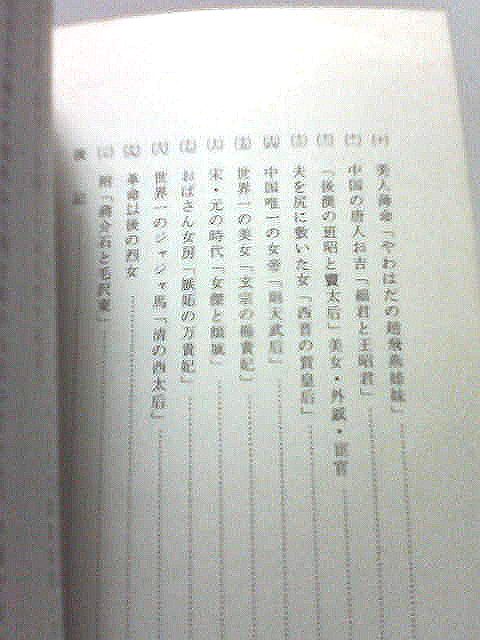 (十) 美人薄命「やわはだの趙飛燕姉妹」
中国の唐人お吉「細君と王昭君」
「後漢の班昭と竇太后」美女・外戚・宦官
夫を尻に敷いた女「西晋の賈皇后」
中国唯一の女帝「則天武后」
世界一の美女「玄宗の楊貴妃」
宋・元の時代「女傑と傾城」
おばさん女房「嫉妬の万貴妃」
世界一のジャジャ馬「清の西太后」
革命以後の烈女
附「蔣介石と毛沢東」
後記